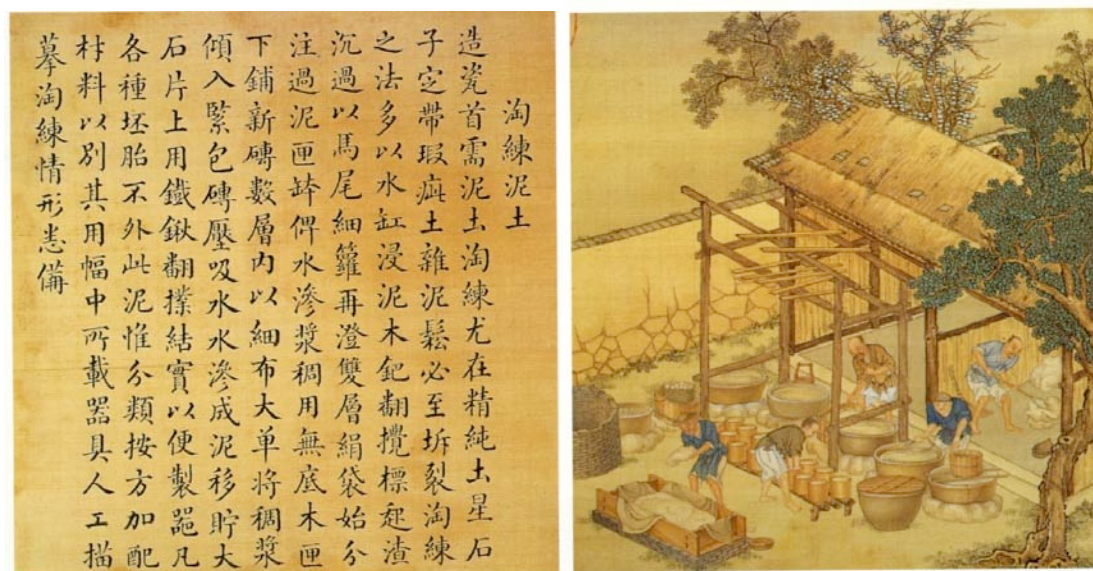 淘練泥土
造瓷首需泥土淘練尤在精純土星石
子定帶瑕疵土雜泥鬆必至坼裂淘練
之法多以水缸浸泥木鈀翻攪標起渣
沉過以馬尾細籮再澄雙層絹袋始分
注過泥匣缽俾水滲漿稠用無底木匣
下鋪新磚數層內以細布大单將稠漿
傾入緊包磚壓吸水水滲成泥移貯大
石片上用鐵鍬翻撲結實以便製器凡
各種坯胎不外此泥惟分類按方加配
材料以別其用幅中所載器具人工描
摹淘練情形悉備